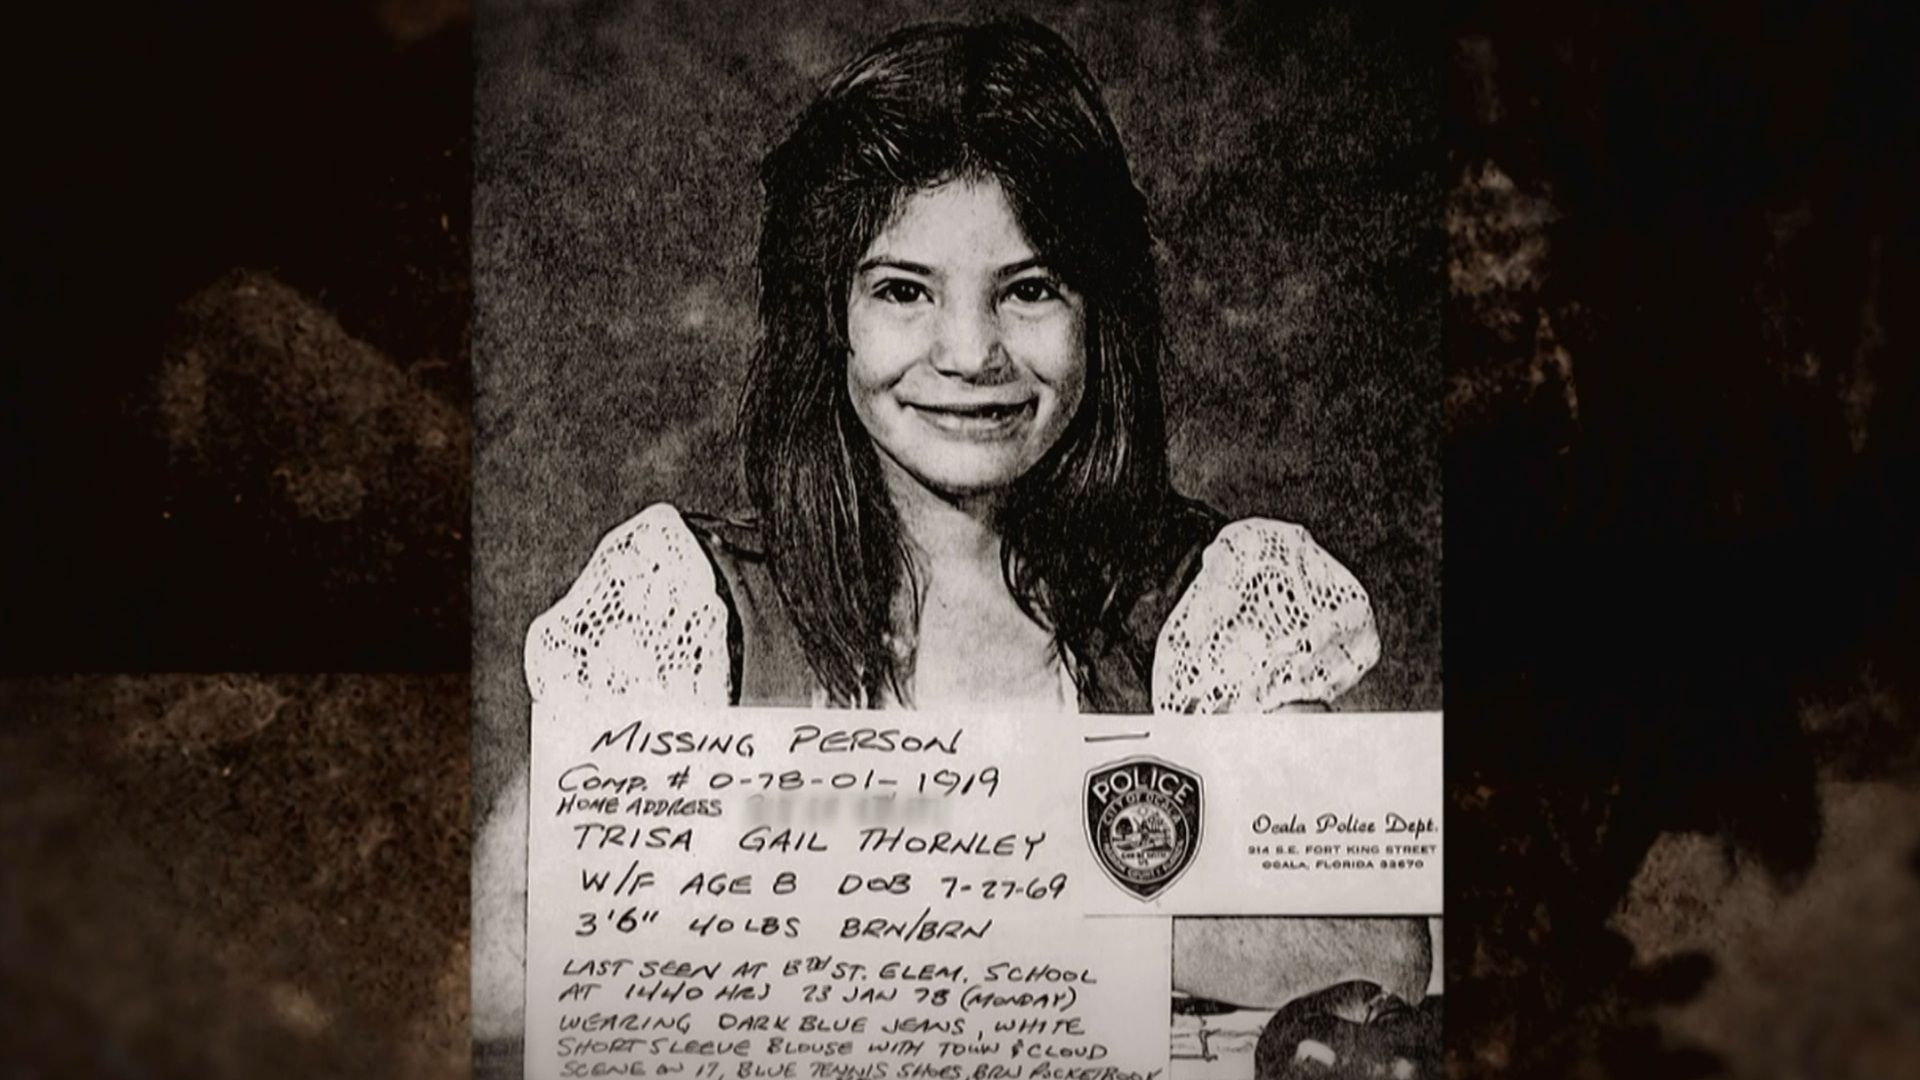 MISSING PERSON
COMP. # 0-78-01-1919
HOME ADDRESS
TRISA GAIL THORNLEY
W/F AGE 8 DOB 7-27-69
3'6" 40 LBS BRN/BRN
LAST SEEN AT 8TH ST. ELEM. SCHOOL
AT 1440 HRS 23 JAN 78 (MONDAY)
WEARING DARK BLUE JEANS, WHITE
SHORT SLEEVE BLOUSE WITH TOWN & CLOUD
SCENE ON IT, BLUE TENNIS SHOES, BRN POCKETBOOK
POLICE
CITY OF OCALA
Ocala Police Dept.
214 S.E. FORT KING STREET
OCALA, FLORIDA 32670